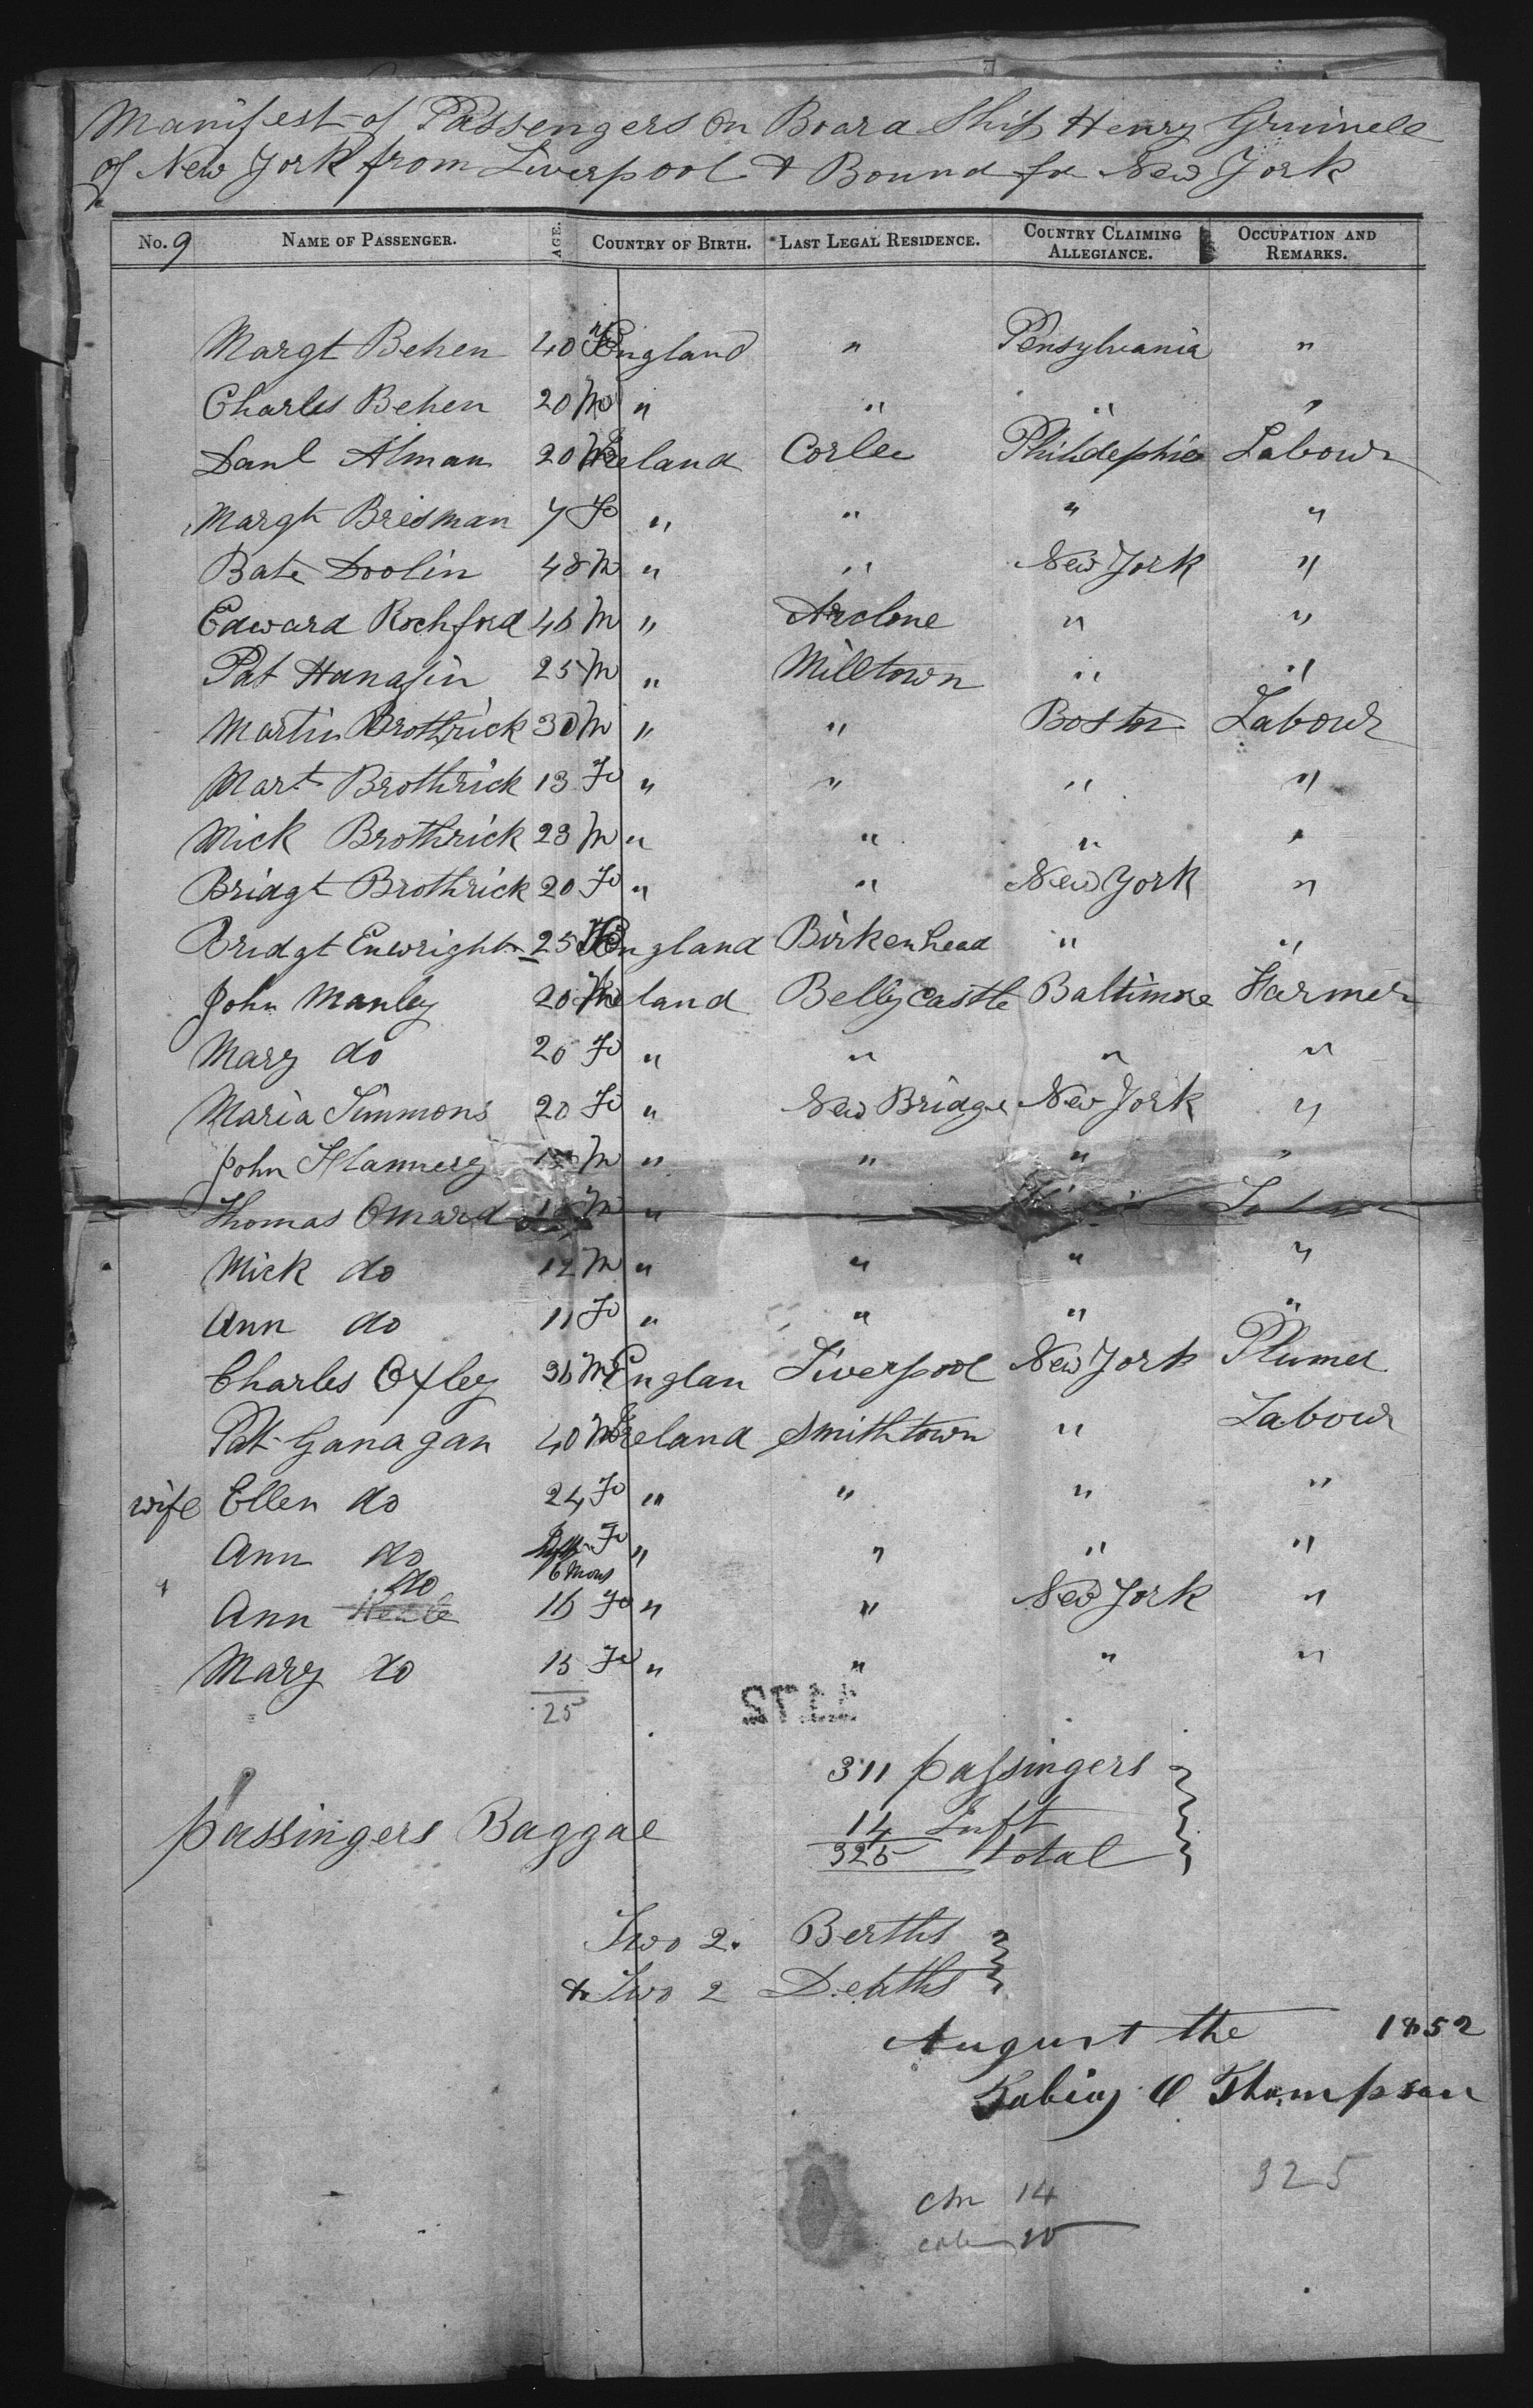 Manifest of Passengers On Board Ship Henry Grinnell
of New York from Liverpool & Bound for New York
No. 9 NAME OF PASSENGER. AGE. COUNTRY OF BIRTH. LAST LEGAL RESIDENCE. COUNTRY CLAIMING ALLEGIANCE. OCCUPATION AND REMARKS.
Margt Behen 40 England " Pensylvania "
Charles Behen 20 M " " " "
Danl Alman 20 M Ireland Corlee Phildephia Labour
Margt Bresman 7 F " " " "
Bate Doolin 48 M " " New York "
Edward Rochford 46 M " Arclone " "
Pat Hanafin 25 M " Milltown " "
Martin Brothrick 30 M " " Boston Labour
Mart Brothrick 13 F " " " "
Mick Brothrick 23 M " " " "
Bridgt Brothrick 20 F " " New York "
Bridgt Enwright 25 F England Birkenhead " "
John Manley 20 M Ireland Bellycastle Baltimore Farmer
Mary do 20 F " " " "
Maria Simmons 20 F " New Bridge New York "
John Flannery M " " " "
Thomas Omard M "
Mick do 12 M " " " "
Ann do 11 F " " " "
Charles Oxley 36 M Englan Liverpool New York Plumer
Pat Ganagan 40 M Ireland Smithtown " Labour
wife Ellen do 24 F " " " "
Ann do 6 Mons F " " " "
" Ann do 16 F " " New York "
Mary do 15 F " " " "
25
311 passingers
14 Inft
325 Total
passingers Baggae
Two 2. Berths
& Two 2 Deaths
August the 1852
Thompson
325
14